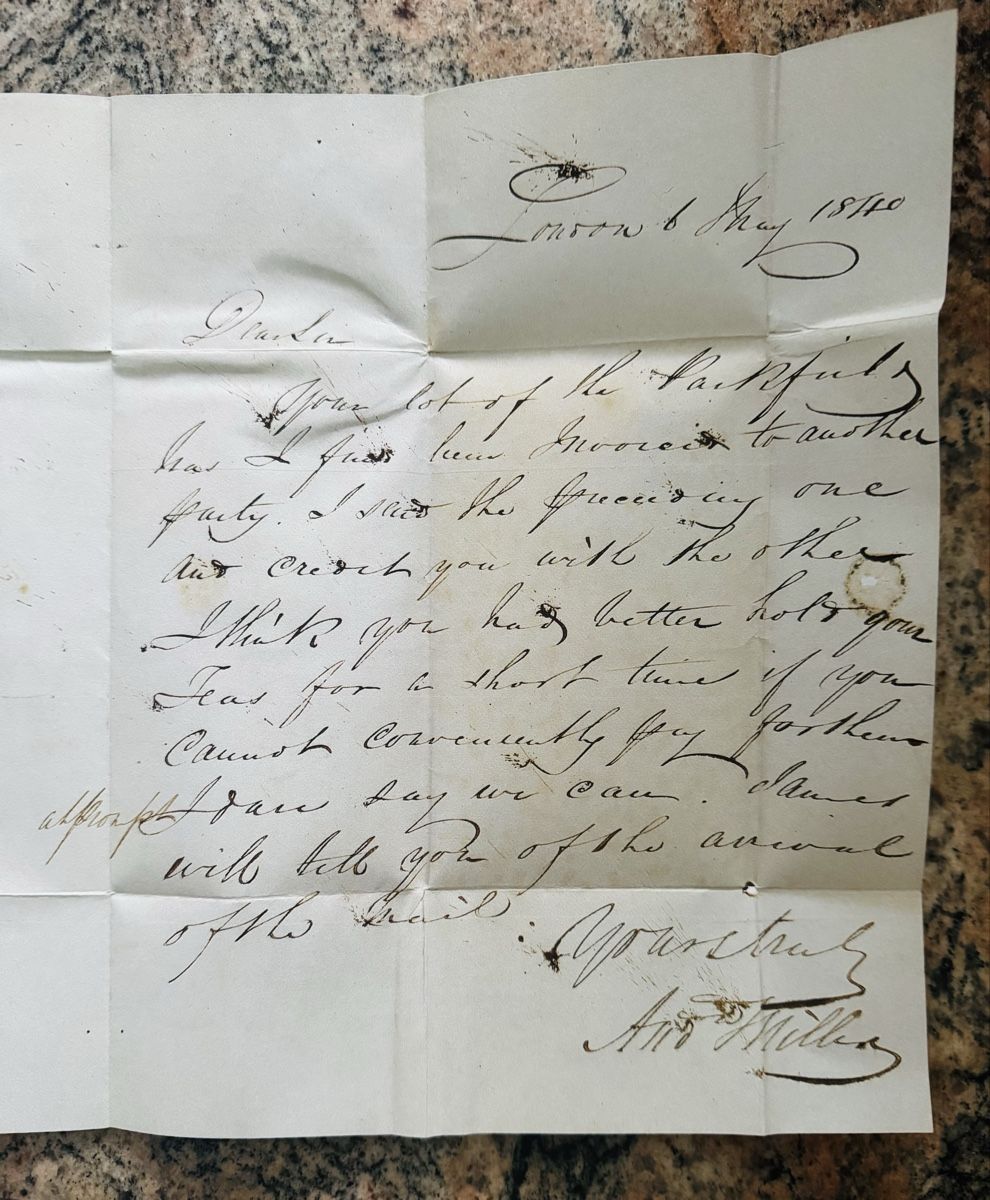 London 6 May 1840
Dear Sir
Your lot of the Parkfield
has I find been Invoiced to another
party. I send the preceding one
and credit you with the other
I think you had better hold your
Teas for a short time if you
cannot conveniently pay for them
at prompt I dare say we can. James
will tell you of the arrival
of the Mail.
Yours truly
And Miller